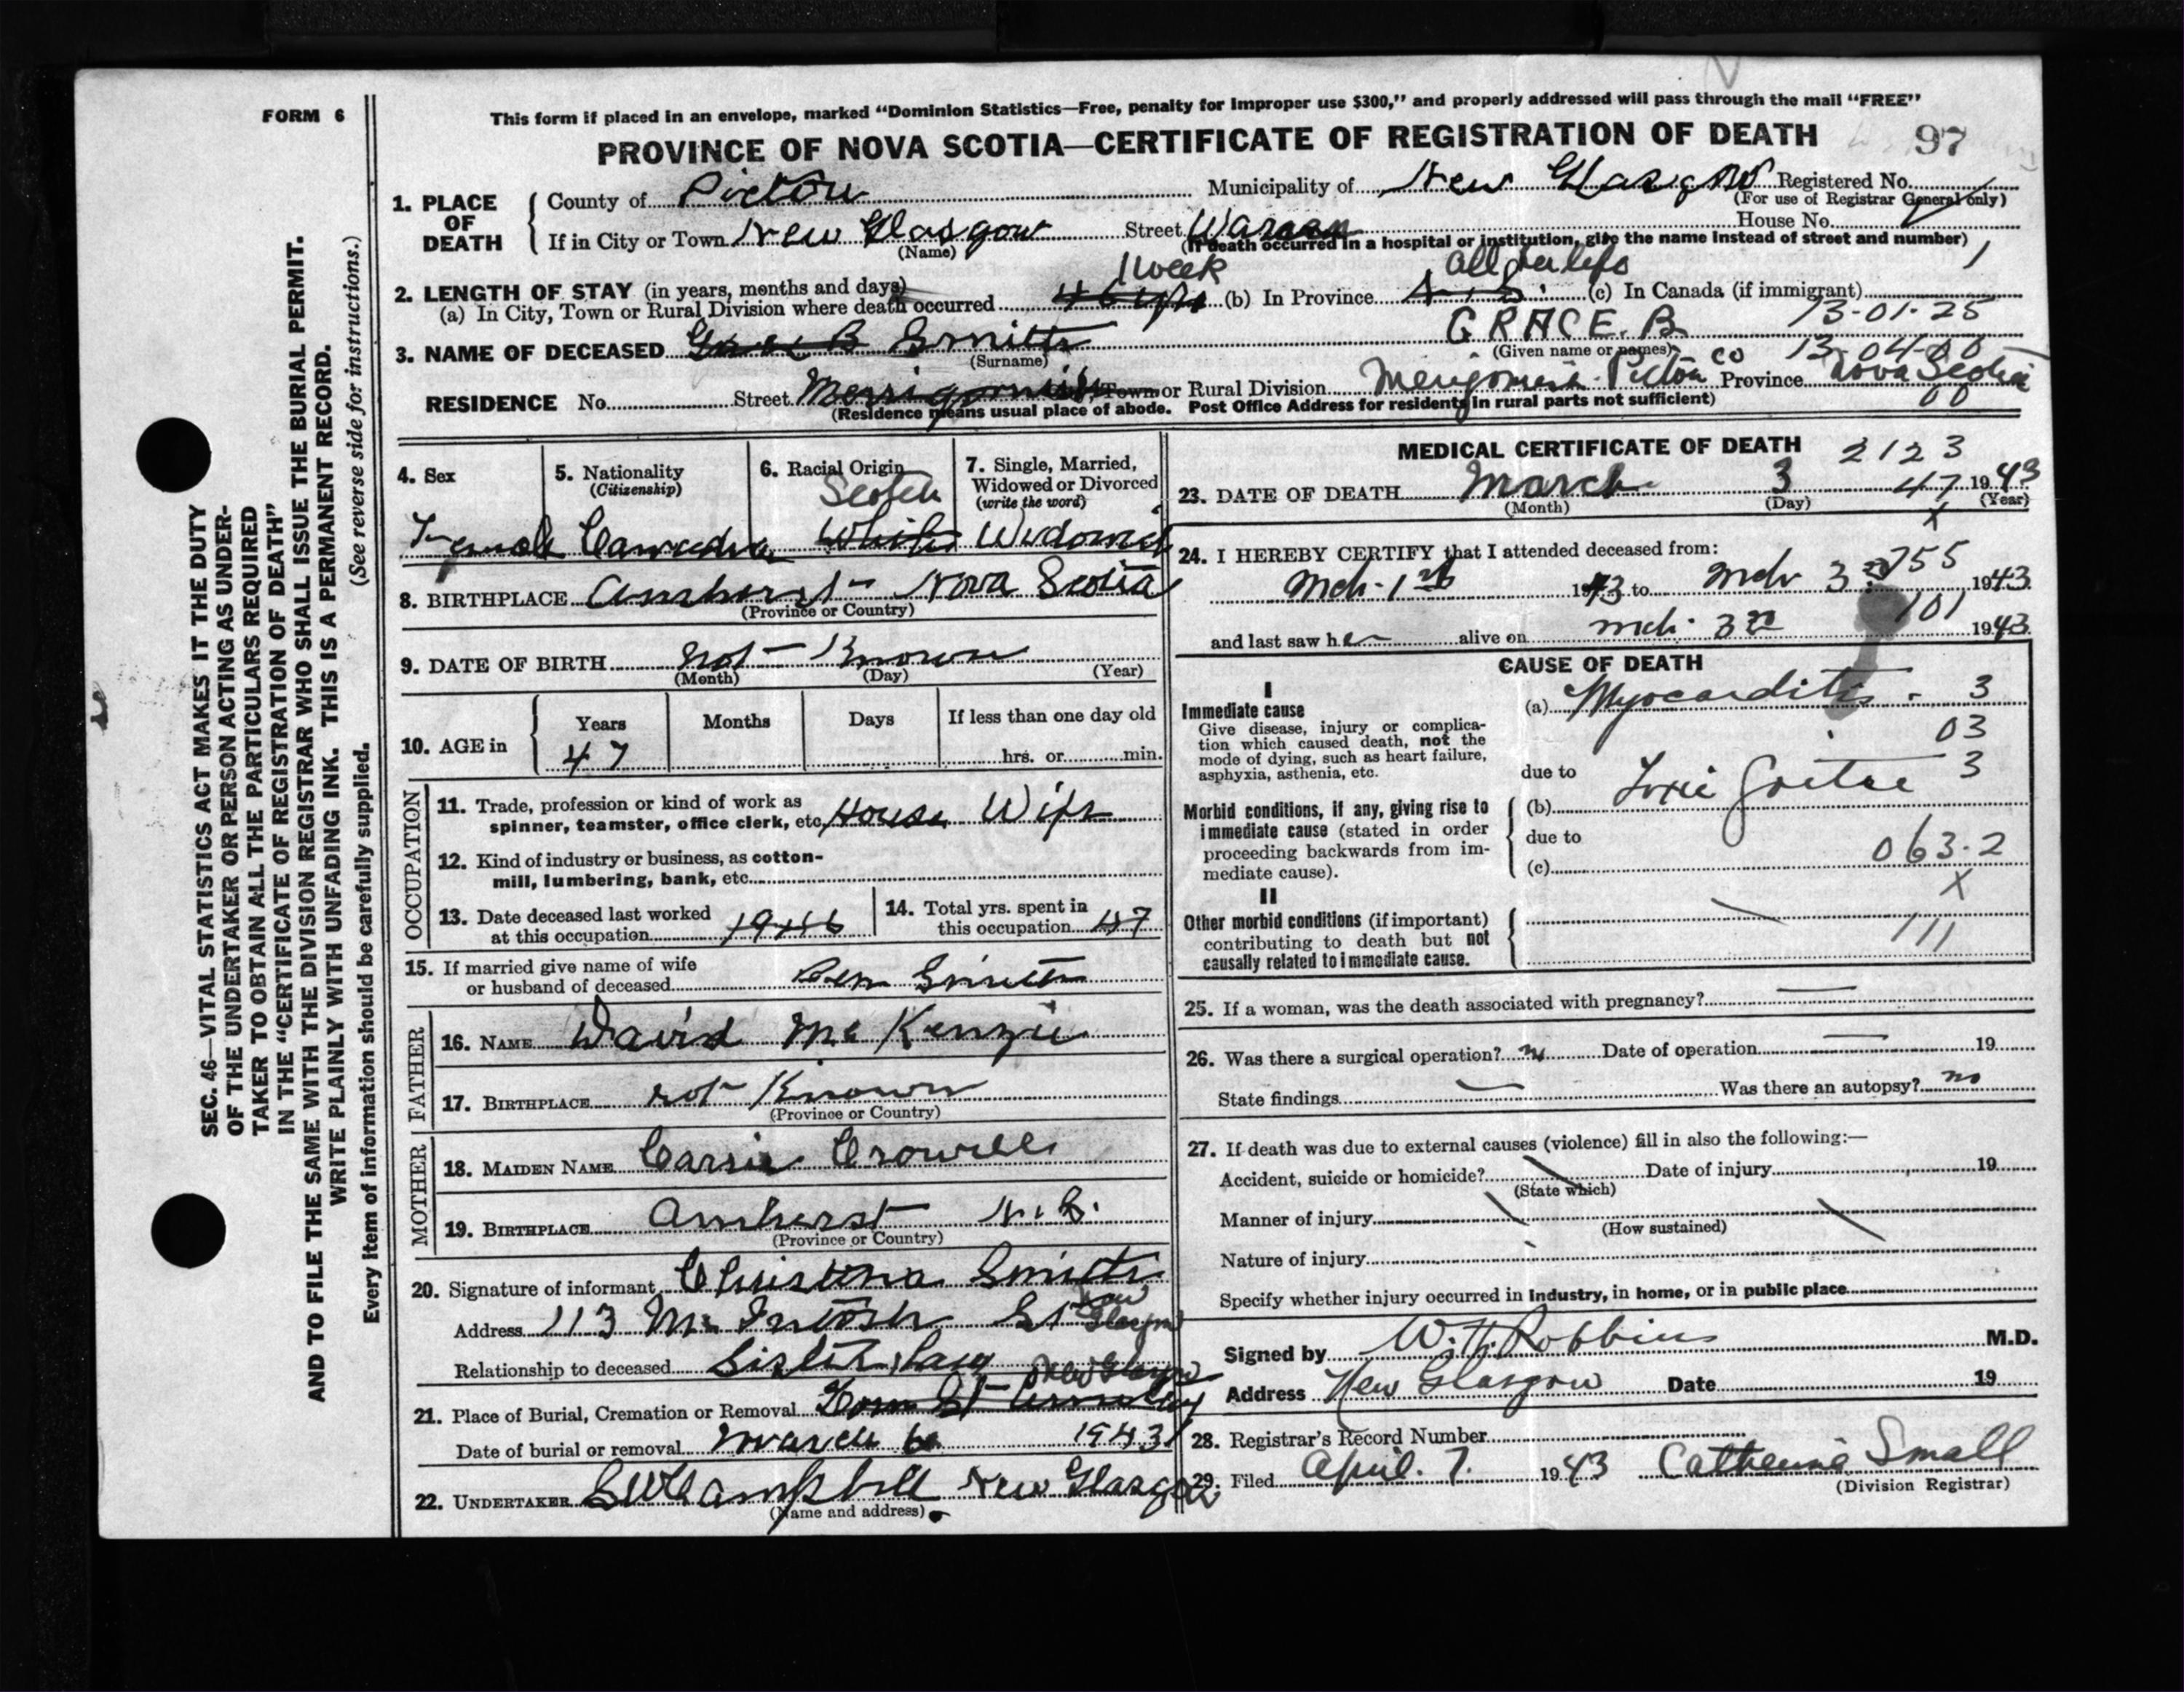 FORM 6
This form if placed in an envelope, marked "Dominion Statistics—Free, penalty for Improper use $300," and properly addressed will pass through the mail "FREE"
PROVINCE OF NOVA SCOTIA—CERTIFICATE OF REGISTRATION OF DEATH 97
1. PLACE OF DEATH
County of Pictou Municipality of New Glasgow Registered No.
(For use of Registrar General only)
If in City or Town New Glasgow Street House No.
(Name) (If death occurred in a hospital or institution, give the name instead of street and number)
1 week All her life 1
2. LENGTH OF STAY (in years, months and days)
(a) In City, Town or Rural Division where death occurred (b) In Province N.S. (c) In Canada (if immigrant)
GRACE. B 13-01-25
3. NAME OF DECEASED Grace B Smith
(Surname) (Given name or names) 13-04-00
RESIDENCE No. Street Merrigomish Town or Rural Division Merigomish Pictou Co Province Nova Scotia
(Residence means usual place of abode. Post Office Address for residents in rural parts not sufficient) 00
4. Sex
5. Nationality
(Citizenship)
6. Racial Origin
7. Single, Married,
Widowed or Divorced
(write the word)
Scotch
Female Canadian White Widowed
8. BIRTHPLACE Amherst Nova Scotia
(Province or Country)
9. DATE OF BIRTH not Known
(Month) (Day) (Year)
10. AGE in Years Months Days If less than one day old
47 hrs. or min.
OCCUPATION
11. Trade, profession or kind of work as
spinner, teamster, office clerk, etc. House Wife
12. Kind of industry or business, as cotton-
mill, lumbering, bank, etc.
13. Date deceased last worked
at this occupation
14. Total yrs. spent in
this occupation 47
15. If married give name of wife
or husband of deceased Smith
FATHER
16. NAME David McKenzie
17. BIRTHPLACE not Known
(Province or Country)
MOTHER
18. MAIDEN NAME Carrie Crowell
19. BIRTHPLACE Amherst N.S.
(Province or Country)
20. Signature of informant Christina Smith
Address 113 McIntosh St New Glasgow
Relationship to deceased Sister law
New Glasgow
21. Place of Burial, Cremation or Removal
Date of burial or removal March 6 1943
22. UNDERTAKER Campbell New Glasgow
(Name and address)
MEDICAL CERTIFICATE OF DEATH 2123
23. DATE OF DEATH March 3 47 1943
(Month) (Day) (Year)
X
24. I HEREBY CERTIFY that I attended deceased from:
Mch 1st 1943 to Mch 3rd 755 1943
101
and last saw her alive on Mch 3rd 1943
CAUSE OF DEATH
I
Immediate cause
Give disease, injury or complica-
tion which caused death, not the
mode of dying, such as heart failure,
asphyxia, asthenia, etc.
(a) Myocarditis - 3
03
due to 3
Morbid conditions, if any, giving rise to
immediate cause (stated in order
proceeding backwards from im-
mediate cause).
(b) Toxic Goitre
due to
063.2
(c)
X
II
Other morbid conditions (if important)
contributing to death but not
causally related to immediate cause.
111
25. If a woman, was the death associated with pregnancy? —
26. Was there a surgical operation? no Date of operation — 19
State findings — Was there an autopsy? no
27. If death was due to external causes (violence) fill in also the following:—
Accident, suicide or homicide? Date of injury 19
(State which)
Manner of injury
(How sustained)
Nature of injury
Specify whether injury occurred in industry, in home, or in public place
Signed by W.H. Robbins M.D.
Address New Glasgow Date 19
28. Registrar's Record Number
29. Filed April 7. 1943 Catherine Small
(Division Registrar)
SEC. 46—VITAL STATISTICS ACT MAKES IT THE DUTY
OF THE UNDERTAKER OR PERSON ACTING AS UNDER-
TAKER TO OBTAIN ALL THE PARTICULARS REQUIRED
IN THE "CERTIFICATE OF REGISTRATION OF DEATH"
AND TO FILE THE SAME WITH THE DIVISION REGISTRAR WHO SHALL ISSUE THE BURIAL PERMIT.
WRITE PLAINLY WITH UNFADING INK. THIS IS A PERMANENT RECORD.
(See reverse side for instructions.)
Every item of information should be carefully supplied.